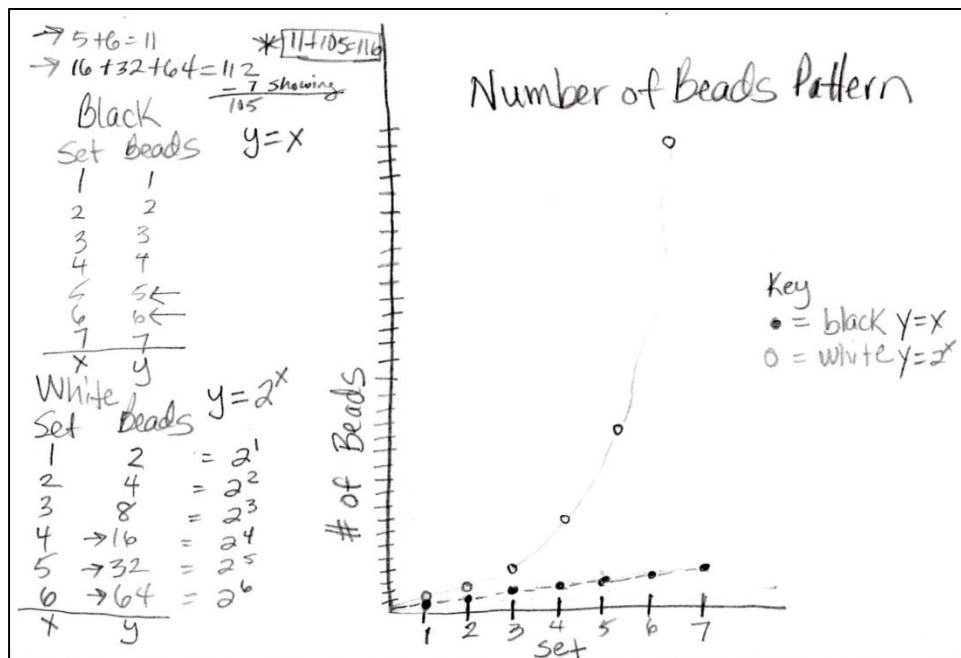 → 5+6=11
→ 16+32+64=112
-7 showing
105
* 11+105=116
Black
Set Beads y=x
1 1
2 2
3 3
4 4
5 5←
6 6←
7 7
x y
White y=2ˣ
Set Beads
1 2 = 2¹
2 4 = 2²
3 8 = 2³
4 →16 = 2⁴
5 →32 = 2⁵
6 →64 = 2⁶
x y
Number of Beads Pattern
# of Beads
1 2 3 4 5 6 7
Set
Key
● = black y=x
○ = white y=2ˣ